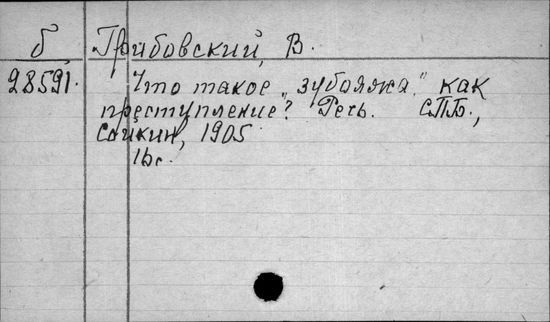 б Грибовский, В.
28591. Что такое „зубаяжа" как
преступление? Речь. СПБ.,
Сойкин, 1905
16с.